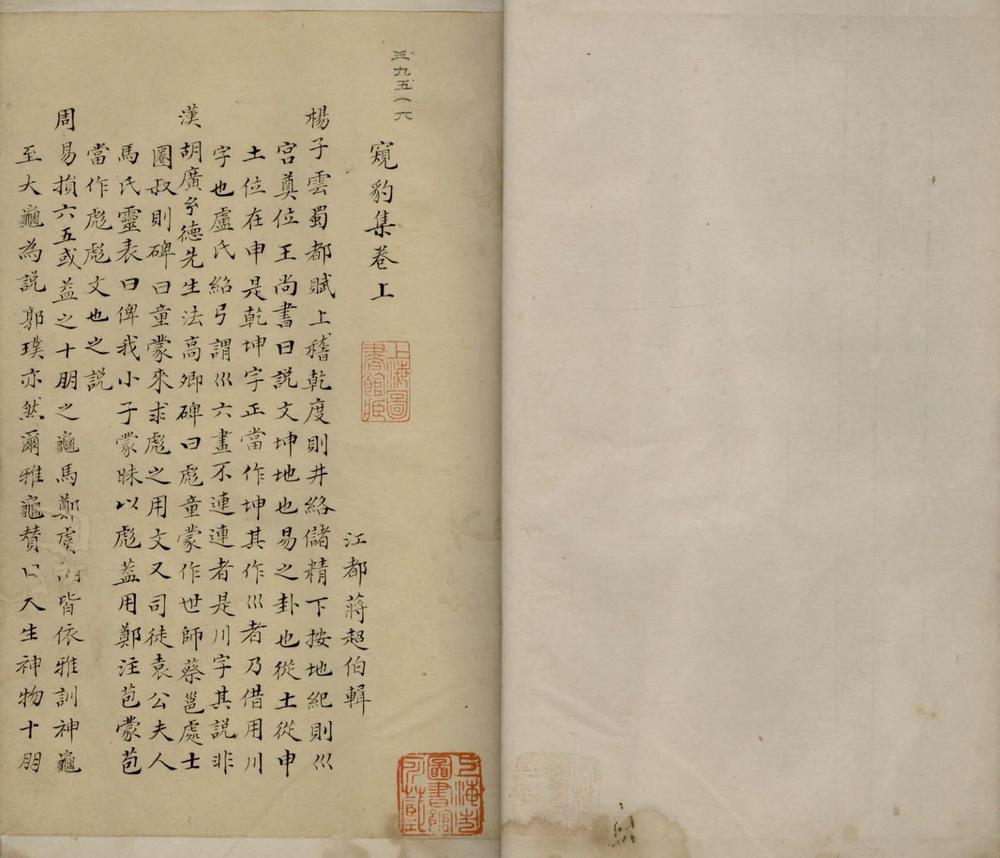 三九五一六
窺豹集卷上
江都蔣超伯輯
楊子雲蜀都賦上稽乾度則井絡儲精下按地紀則巛
宮奠位王尚書曰說文坤地也易之卦也從土從申
土位在申是乾坤字正當作坤其作巛者乃借用川
字也盧氏紹弓謂巛六畫不連連者是川字其說非
漢胡廣等德先生法高卿碑曰彪童蒙作世師蔡邕處士
圈叔則碑曰童蒙來求彪之用文又司徒袁公夫人
馬氏靈表曰俾我小子蒙昧以彪蓋用鄭注苞蒙苞
當作彪彪文也之說
周易損六五或益之十朋之龜馬鄭虞皆依雅訓神龜
至大龜為說郭璞亦然爾雅龜贊曰天生神物十朋
上海圖書館藏
上海市圖書館所藏